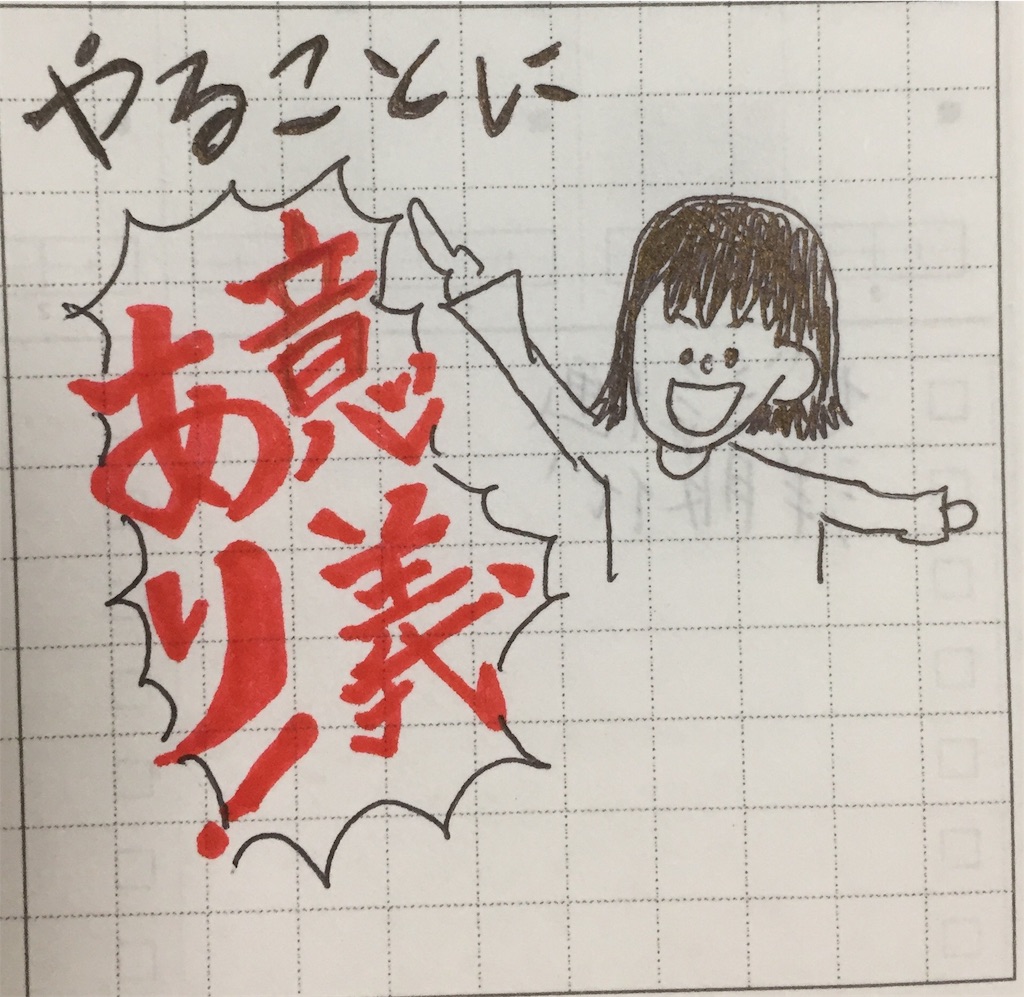 やることに
意義
あり!